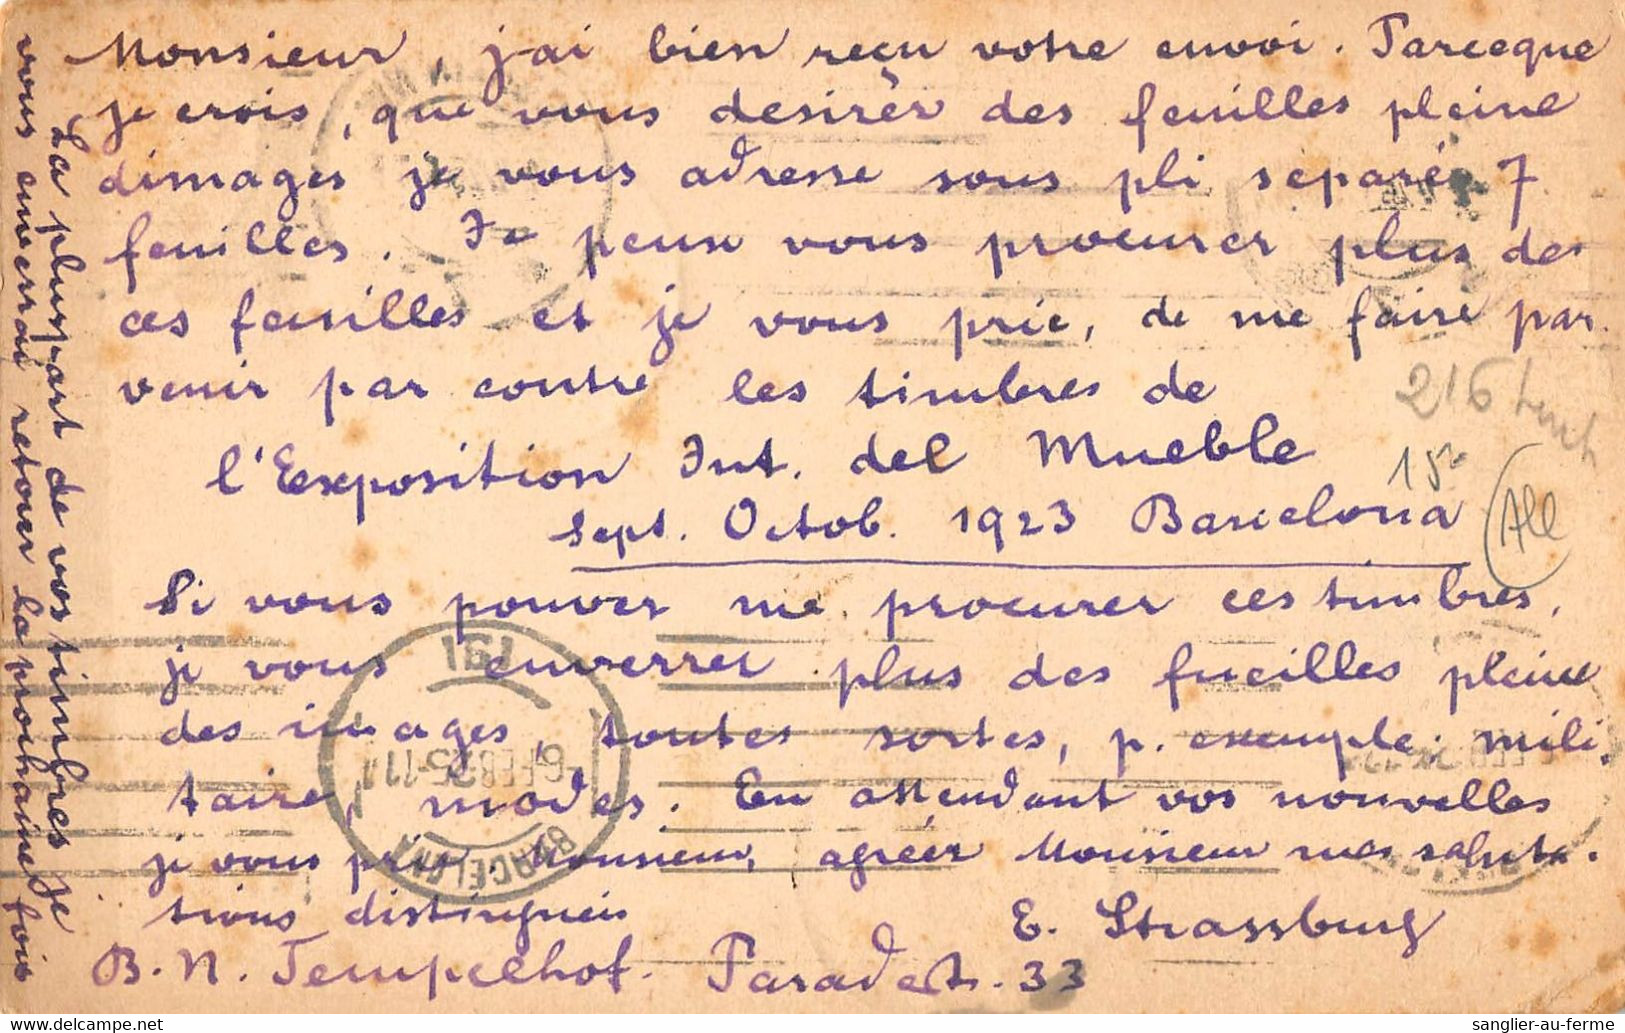 Monsieur, j'ai bien reçu votre envoi. Parceque
je crois, que vous desirèr des feuilles pleine
dimages je vous adresse sous pli separé 7
feuilles. Je peux vous procurer plus des
ces feuilles et je vous prie, de me faire par.
venir par contre les timbres de
l'Exposition Int. del Mueble
Sept. Octob. 1923 Barcelona
Si vous pouver me procurer ces timbres,
je vous enverrer plus des fueilles pleine
des images, toutes sortes, p. exemple: mili.
taire, modes. En attendant vos nouvelles
je vous prie Monsieur, agréer Monsieur mes saluta.
tions distinguées
E. Strassburg
B. N. Tempelhof. Paradestr. 33
La pluspart de vos timbres je
vous enverrai retour la prochaine fois
216
15
All
191
-6 FEB 25-11
BARCELONA
sanglier-au-ferme